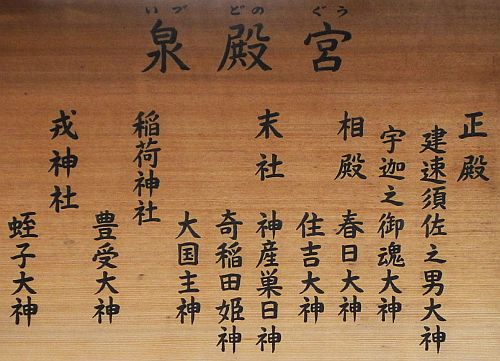 いづどのぐう
泉殿宮
正殿
建速須佐之男大神
宇迦之御魂大神
相殿
春日大神
住吉大神
末社
神産巣日神
奇稲田姫神
大国主神
稲荷神社
豊受大神
戎神社
蛭子大神